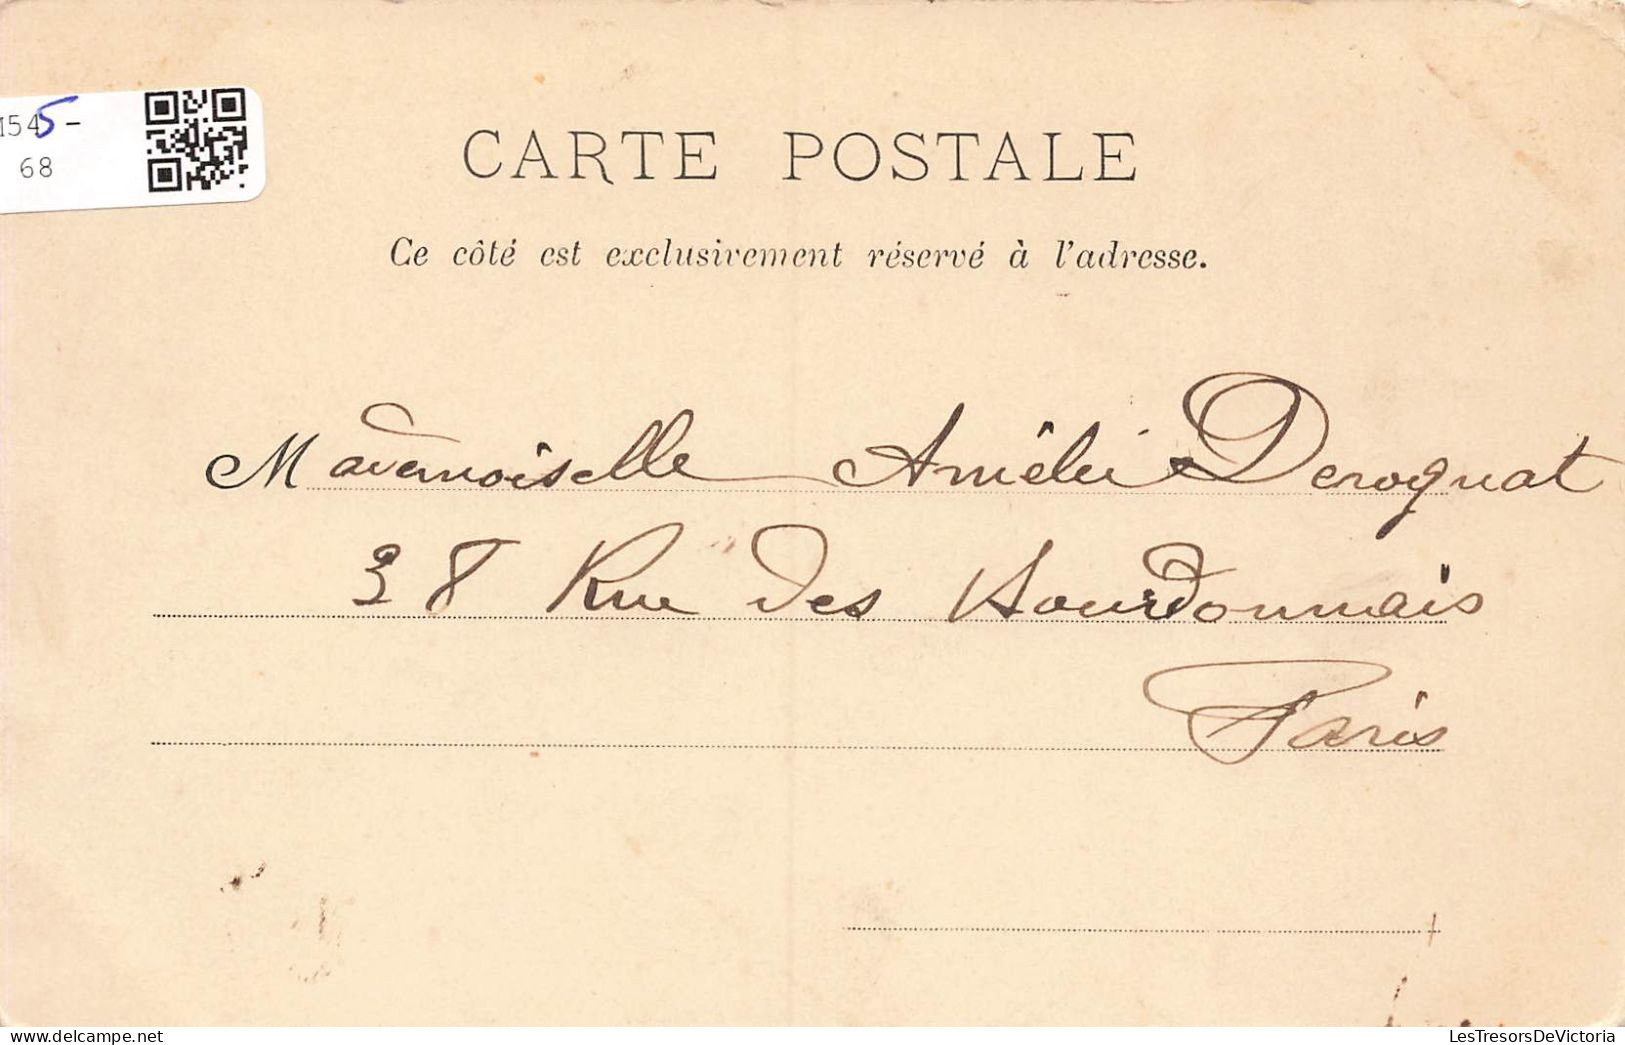 1545-
68
CARTE POSTALE
Ce côté est exclusivement réservé à l'adresse.
Mademoiselle Amélie Derognat
38 Rue des Bourdonnais
Paris
delcampe.net
LesTresorsDeVictoria